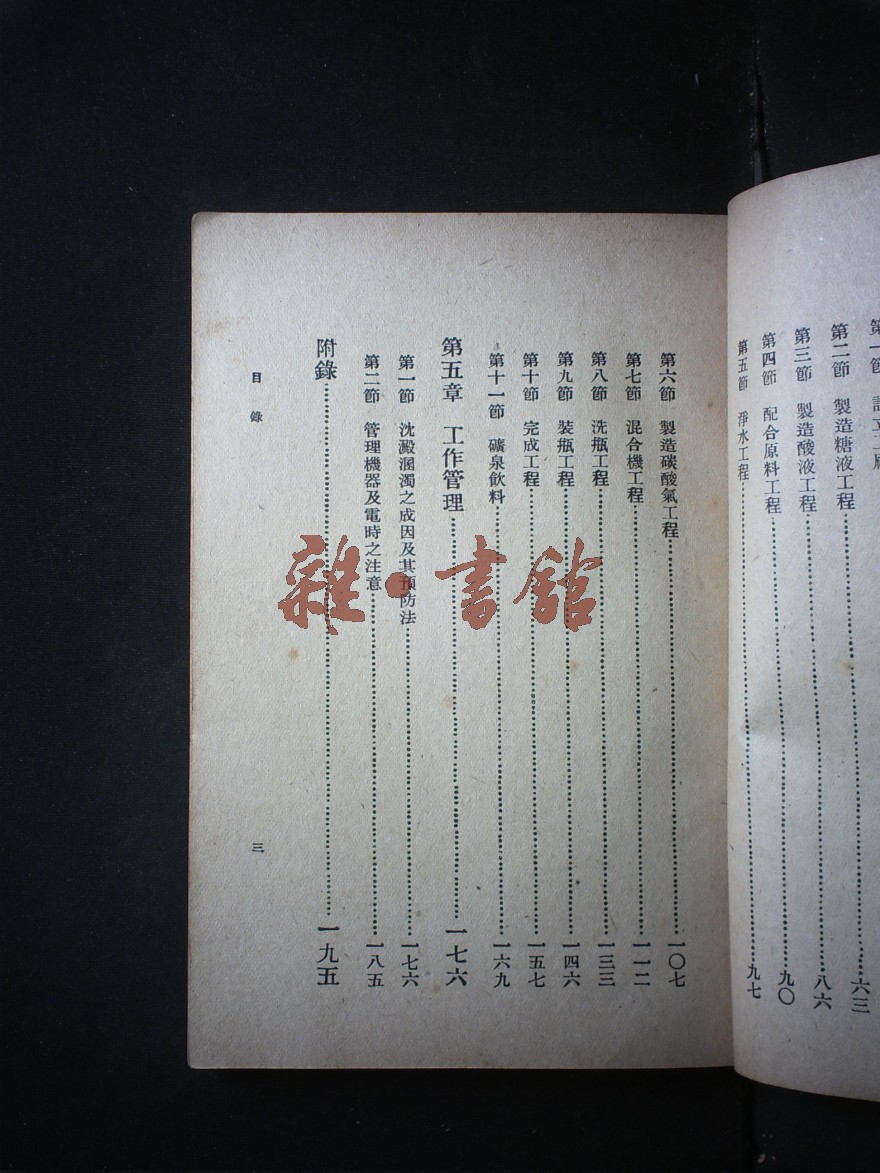 第二節　製造糖液工程……六三
第三節　製造酸液工程……八六
第四節　配合原料工程……九〇
第五節　淨水工程……九七
第六節　製造碳酸氣工程……一〇七
第七節　混合機工程……一一二
第八節　洗瓶工程……一三三
第九節　裝瓶工程……一四六
第十節　完成工程……一五七
第十一節　礦泉飲料……一六九
第五章　工作管理……一七六
第一節　沈澱溷濁之成因及其預防法……一七六
第二節　管理機器及電時之注意……一八五
附錄……一九五
目錄
三
雜·書館